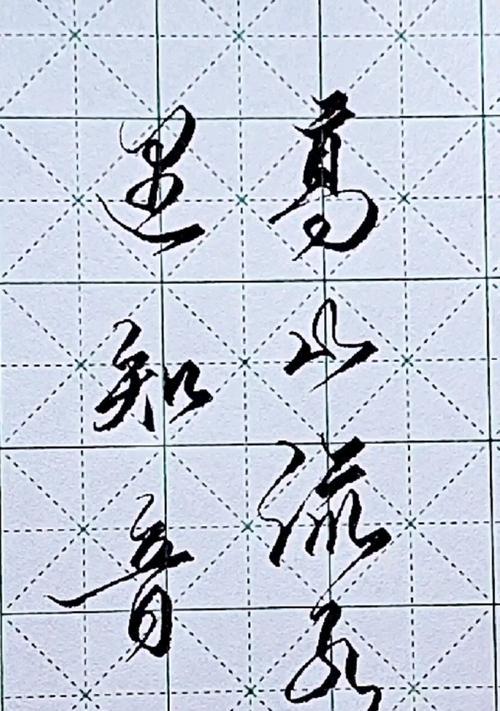 高山流水
遇知音